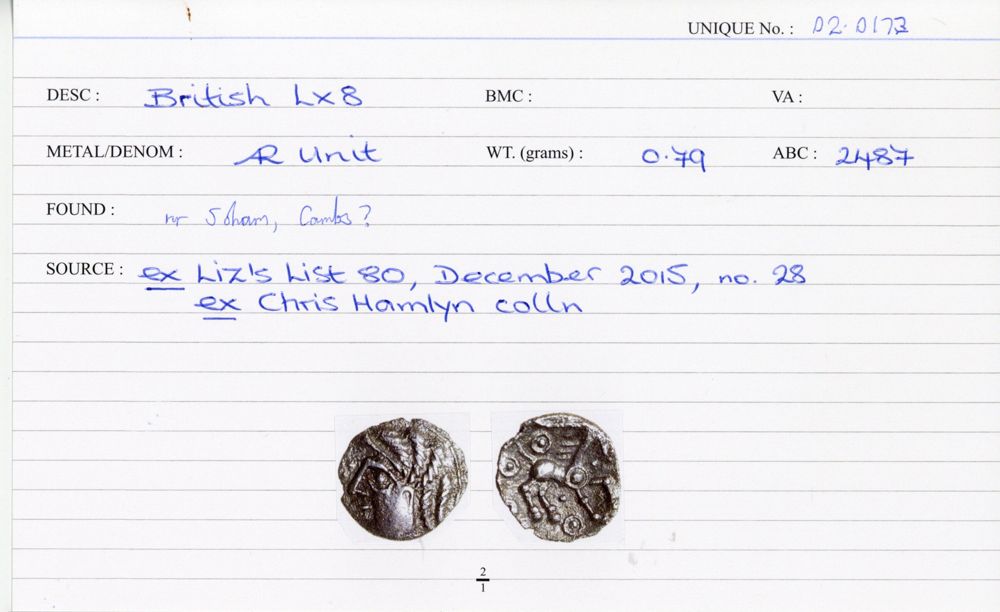 UNIQUE No. : 02.0173
DESC : British Lx8 BMC : VA :
METAL/DENOM : AR Unit WT. (grams) : 0.79 ABC : 2487
FOUND : nr Soham, Cambs?
SOURCE : ex Liz's List 80, December 2015, no. 28
ex Chris Hamlyn colln
2
1